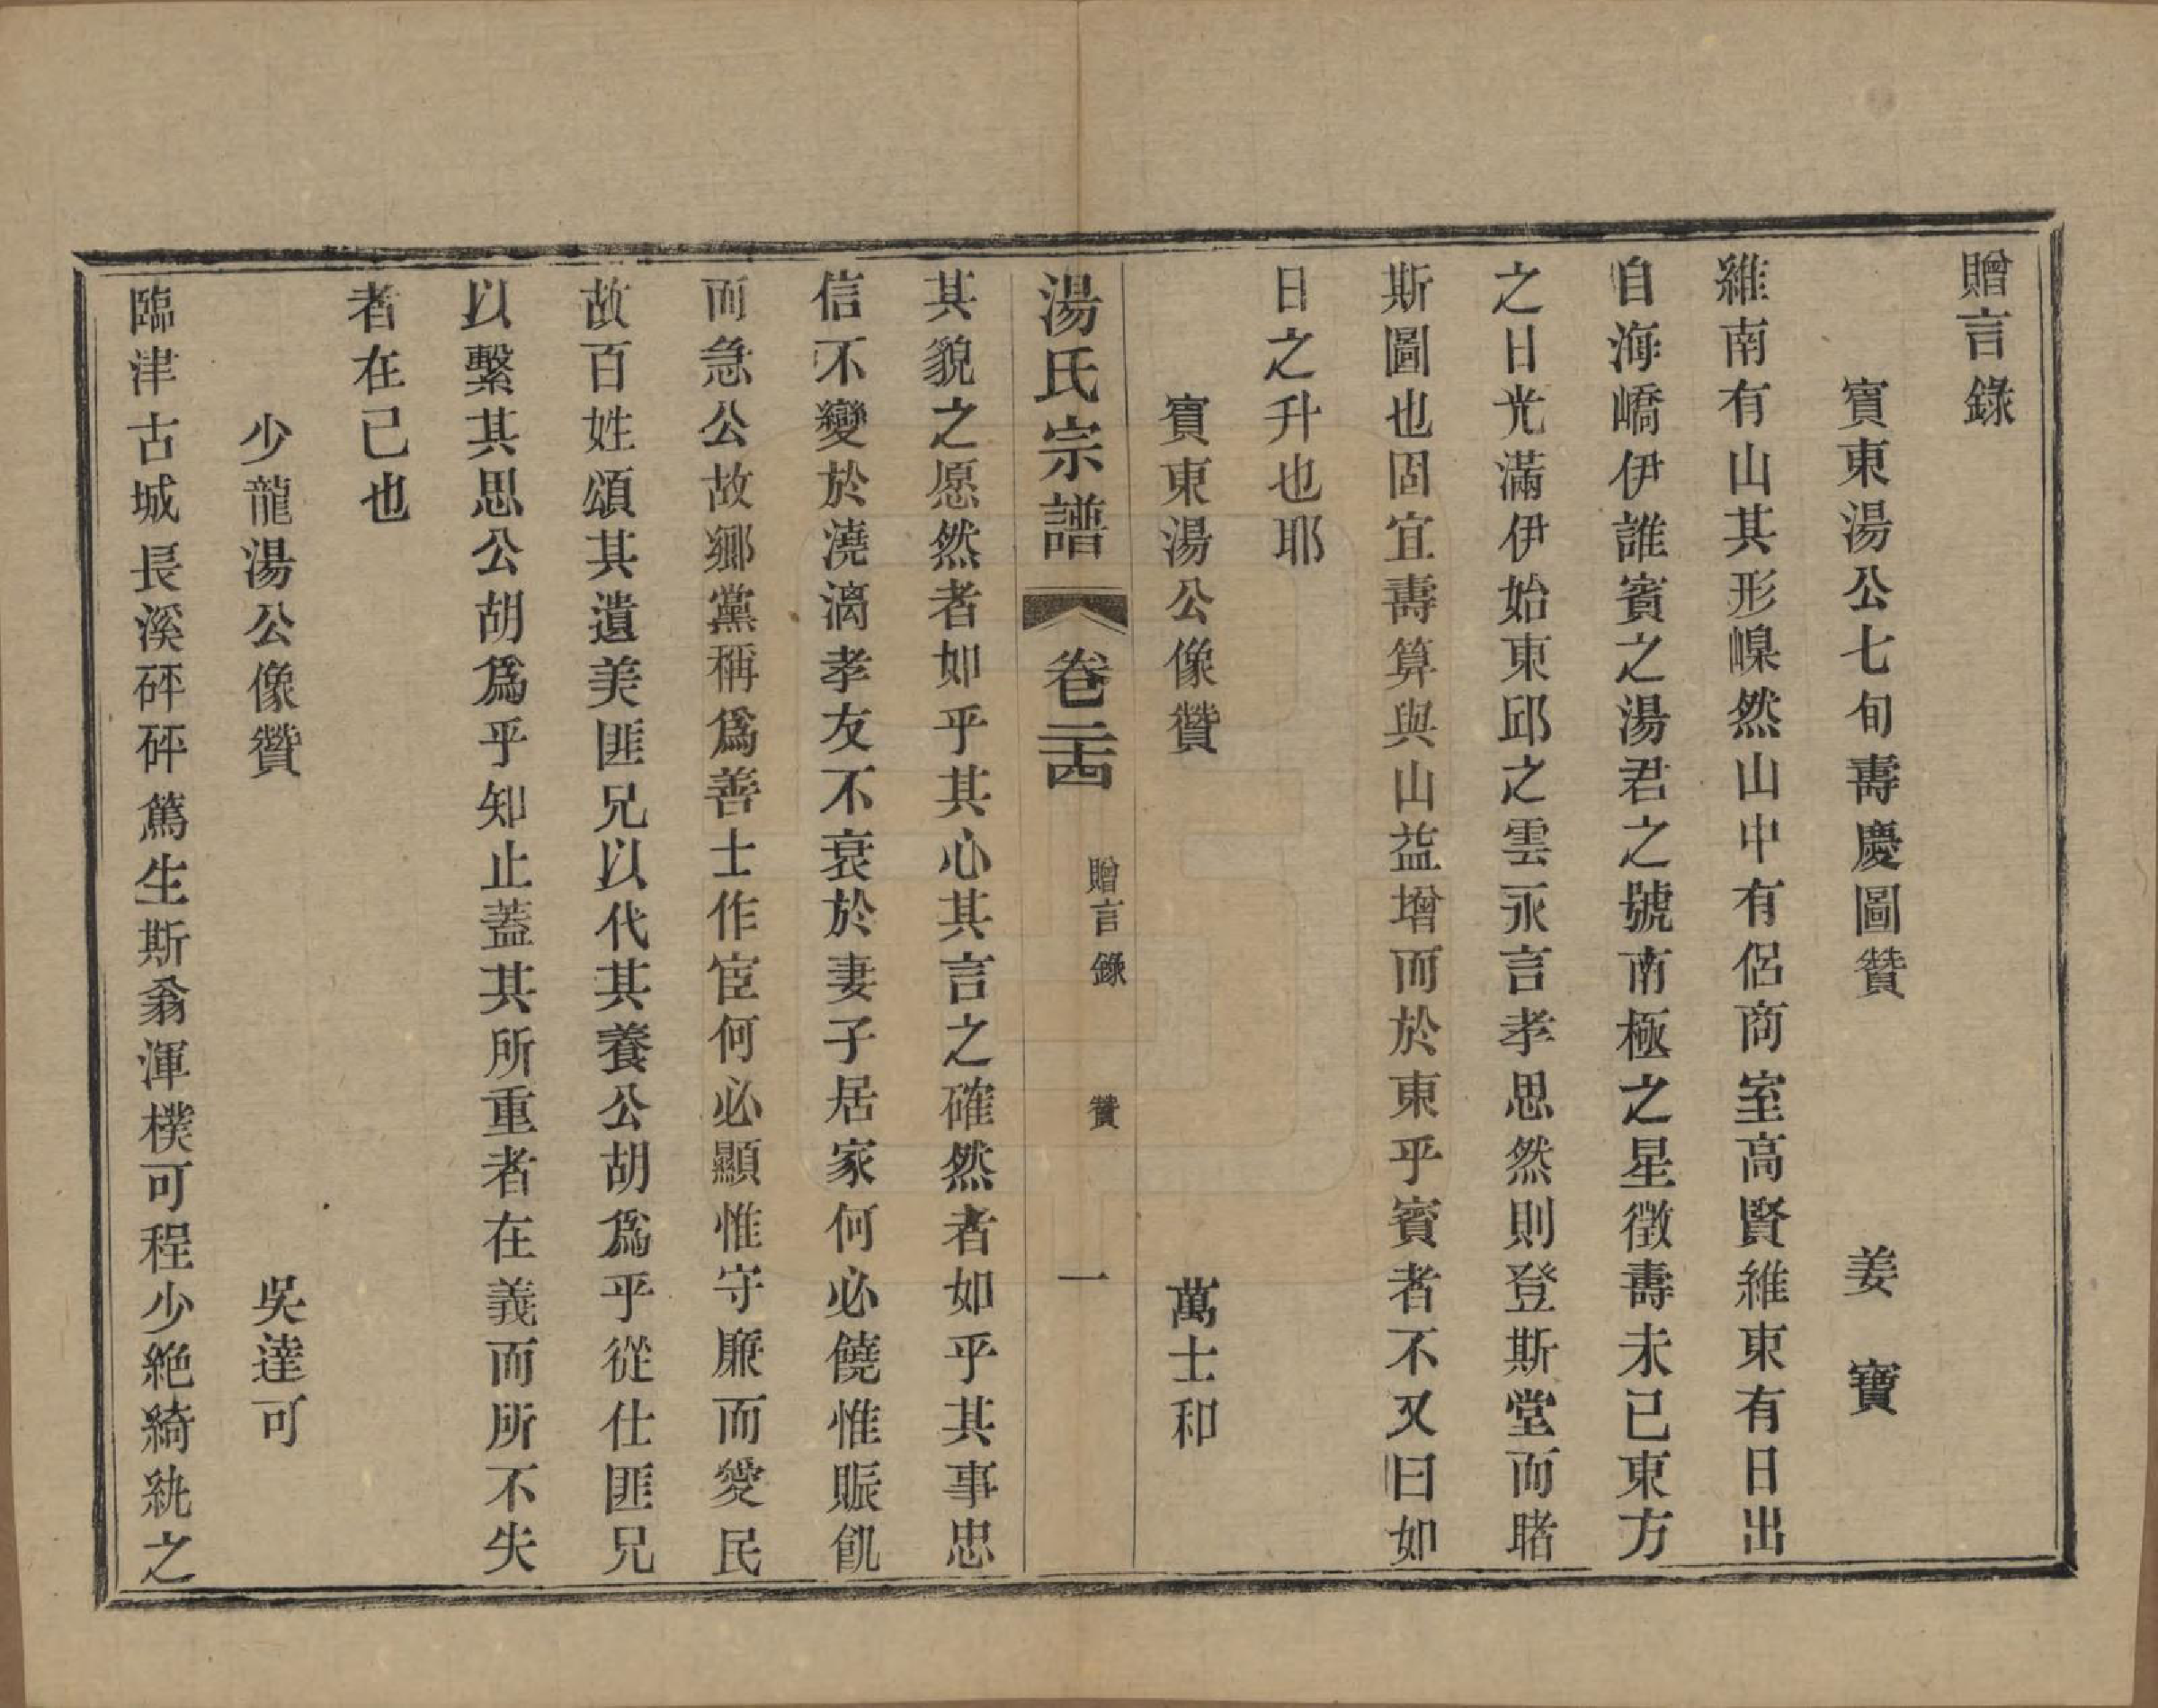 贈言錄
賓東湯公七旬壽慶圖贊　姜　寶
維南有山其形㠔然山中有侶商室高賢維東有日出
自海嶠伊誰賓之湯君之號南極之星徵壽未已東方
之日光滿伊始東邱之雲永言孝思然則登斯堂而睹
斯圖也固宜壽算與山益增而於東乎賓者不又曰如
日之升也耶
賓東湯公像贊　萬士和
湯氏宗譜　卷二十四　贈言錄　贊　一
其貌之愿然者如乎其心其言之確然者如乎其事忠
信不變於澆漓孝友不衰於妻子居家何必饒惟賑飢
而急公故鄉黨稱為善士作宦何必顯惟守廉而愛民
故百姓頌其遺美匪兄以代其養公胡爲乎從仕匪兄
以繫其思公胡爲乎知止蓋其所重者在義而所不失
者在己也
少龍湯公像贊　吳達可
臨津古城長溪砰砰篤生斯翁渾樸可程少絶綺紈之